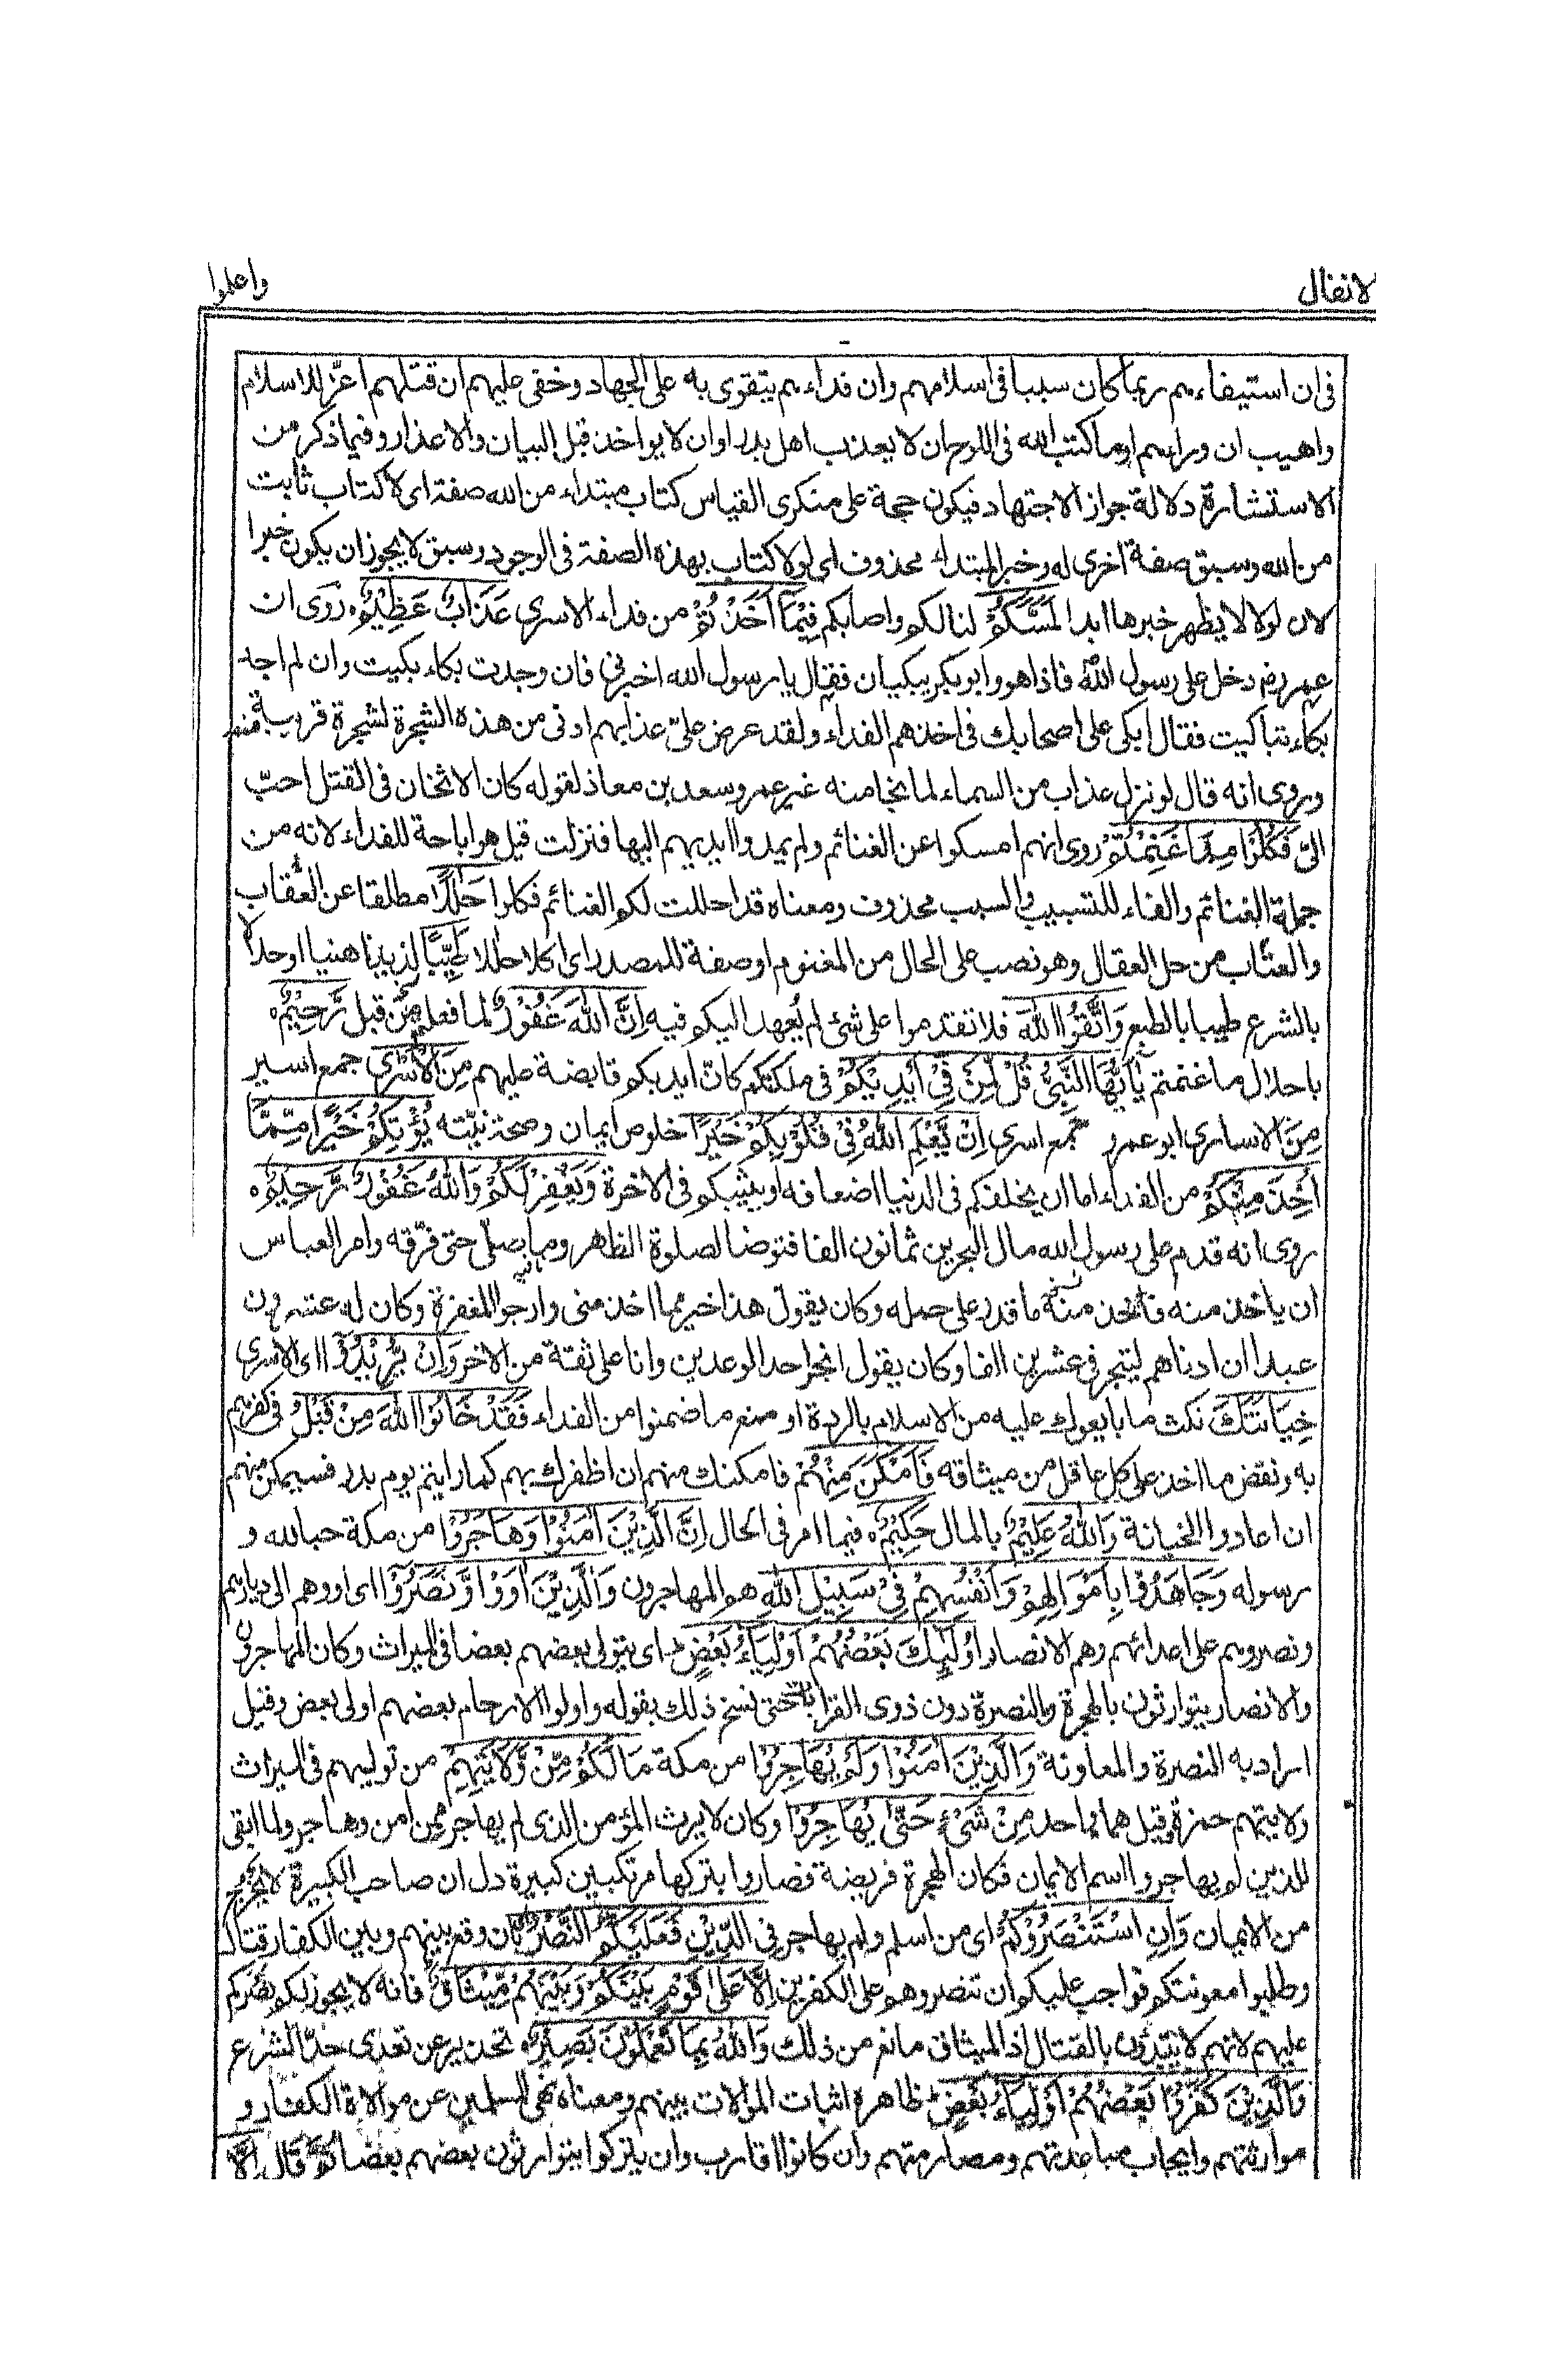 لانفال
واعلموا
فى ان استيفاءهم ربما كان سببا فى اسلامهم وان فداءهم يتقوى به على الجهاد وخفى عليهم ان قتلهم اعزّ للاسلام
واهيب لمن وراءهم او ما كتب الله فى اللوح ان لا يعذب اهل بدر او ان لا يواخذ قبل البيان والاعذار وفيما ذكر من
الاستشارة دلالة جواز الاجتهاد فيكون حجة على منكرى القياس كتاب مبتداء من الله صفته اى لا كتاب ثابت
من الله وسبق صفة اخرى له وخبر المبتداء محذوف اى لولا كتاب بهذه الصفة فى الوجود وسبق لا يجوز ان يكون خبرا
لان لولا لا يظهر خبرها ابدا لَمَسَّكُمْ لنالكم واصابكم فِيْمَا اَخَذْتُمْ من فداء الاسرى عَذَابٌ عَظِيْمٌ روى ان
عمر رض دخل على رسول الله فاذا هو وابو بكر يبكيان فقال يا رسول الله اخبرنى فان وجدت بكاء بكيت وان لم اجد
بكاء تباكيت فقال ابكى على اصحابك فى اخذهم الفداء ولقد عرض علىّ عذابهم ادنى من هذه الشجرة لشجرة قريبة منه
وروى انه قال لو نزل عذاب من السماء لما نجا منه غير عمر وسعد بن معاذ لقوله كان الاثخان فى القتل احبّ
الىّ فَكُلُوْا مِمَّا غَنِمْتُمْ روى انهم امسكوا عن الغنائم ولم يمدوا ايديهم اليها فنزلت قيل هو اباحة للفداء لانه من
جملة الغنائم والفاء للتسبيب والسبب محذوف ومعناه قد احللت لكم الغنائم فكلوا حَلٰلًا مطلقا عن العقاب
والعتاب من حل العقال وهو نصب على الحال من المغنوم او صفة للمصدر اى اكلا حلالا طَيِّبًا لذيذا هنيا او حلالا
بالشرع طيبا بالطبع وَاتَّقُوا اللهَ فلا تقدموا على شئ لم يُعهد اليكم فيه اِنَّ اللهَ غَفُوْرٌ لما فعلتم من قبل رَّحِيْمٌ
باحلال ما غنمتم يٰاَيُّهَا النَّبِىُّ قُلْ لِّمَنْ فِىْ اَيْدِيْكُمْ فى ملكتكم كانّ ايديكم قابضة عليهم مِنَ الْاَسْرٰى جمع اسير
مِنَ الاسارى ابو عمرو جمع اسرى اِنْ يَّعْلَمِ اللهُ فِىْ قُلُوْبِكُمْ خَيْرًا خلوص ايمان وصحة نيّته يُؤْتِكُمْ خَيْرًا مِّمَّا
اُخِذَ مِنْكُمْ من الفداء اما ان يخلفكم فى الدنيا اضعافه او يثيبكم فى الاخرة وَيَغْفِرْ لَكُمْ وَاللهُ غَفُوْرٌ رَّحِيْمٌ
روى انه قدم على رسول الله مال البحرين ثمانون الفا فتوضا لصلوة الظهر وما صلّى حتى فرّقه وامر العباس
ان ياخذ منه فاخذ منه ما قدر على حمله وكان يقول هذا خير مما اخذ منى وارجو المغفرة وكان له عشرون
عبدا ان ادناهم ليتجر فى عشرين الفا وكان يقول انجز احد الوعدين وانا على ثقة من الاخر وَاِنْ يُّرِيْدُوْا اى الاسرى
خِيَانَتَكَ نكث ما بايعوك عليه من الاسلام بالردة او منع ما ضمنوا من الفداء فَقَدْ خَانُوا اللهَ مِنْ قَبْلُ فى كفرهم
به ونقض ما اخذ على كل عاقل من ميثاقه فَاَمْكَنَ مِنْهُمْ فامكنك منهم ان اظفرك بهم كما رايتم يوم بدر فسيمكن منهم
ان اعادوا الخيانة وَاللهُ عَلِيْمٌ بالمال حَكِيْمٌ فيما امر فى الحال اِنَّ الَّذِيْنَ اٰمَنُوْا وَهَاجَرُوْا من مكة حبا لله و
رسوله وَجَاهَدُوْا بِاَمْوَالِهِمْ وَاَنْفُسِهِمْ فِىْ سَبِيْلِ اللهِ هو المهاجرون وَالَّذِيْنَ اٰوَوْا وَّنَصَرُوْا اى اووهم الى ديارهم
ونصروهم على اعدائهم وهم الانصار اُولٰٓئِكَ بَعْضُهُمْ اَوْلِيَاءُ بَعْضٍ اى يتولى بعضهم بعضا فى الميراث وكان المهاجرون
والانصار يتوارثون بالهجرة والنصرة دون ذوى القرابات حتى نسخ ذلك بقوله واولوا الارحام بعضهم اولى ببعض وقيل
اراد به النصرة والمعاونة وَالَّذِيْنَ اٰمَنُوْا وَلَمْ يُهَاجِرُوْا من مكة مَا لَكُمْ مِّنْ وَّلَايَتِهِمْ من توليهم فى الميراث
ولايتهم حمزة وقيل هما واحد مِنْ شَىْءٍ حَتّٰى يُهَاجِرُوْا وكان لا يرث المؤمن الذى لم يهاجر ممن امن وهاجر ولما ابقى
للذين لم يهاجروا اسم الايمان فكان الهجرة فريضة فصاروا بتركها مرتكبين كبيرة دل ان صاحب الكبيرة لا يخرج
من الايمان وَاِنِ اسْتَنْصَرُوْكُمْ اى من اسلم ولم يهاجر فِى الدِّيْنِ فَعَلَيْكُمُ النَّصْرُ بان وقع بينهم وبين الكفار قتال
وطلبوا معونتكم فواجب عليكم ان تنصروهم على الكفرين اِلَّا عَلٰى قَوْمٍ بَيْنَكُمْ وَبَيْنَهُمْ مِّيْثَاقٌ فانه لا يجوز لكم نصركم
عليهم لانهم لا يبتدؤن بالقتال اذ الميثاق مانع من ذلك وَاللهُ بِمَا تَعْمَلُوْنَ بَصِيْرٌ تحذير عن تعدى حدّ الشرع
وَالَّذِيْنَ كَفَرُوْا بَعْضُهُمْ اَوْلِيَاءُ بَعْضٍ ظاهره اثبات الموالات بينهم ومعناه نهى المسلمين عن موالاة الكفار و
موارثتهم وايجاب مباعدتهم ومصارمتهم وان كانوا اقارب وان يتركوا يتوارثون بعضهم بعضا ثم قال اِلَّا